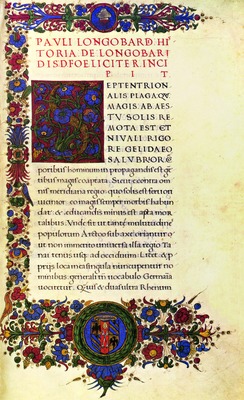 PAVLI LONGOBARDI HIS
TORIA DE LONGOBARDI
IS D FOELICITER INCI
PIT
SEPTENTRION
ALIS PLAGA QV
MAGIS AB AES
TV SOLIS RE
MOTA EST ET
NIVALI RIGO
RE GELIDA EO
SALVBRIOR
poribus hominum in propagandis est gen
tibus magis coaptata. Sicut econtra om
nis meridiana regio quo solis est feruori
uicinior eo magis semper morbis habun
dat & educandis minus est apta mor
talibus. Vnde fit ut tante multitudines
populorum Arctoo sub axe oriantur ut
non immerito uniuersa illa regio Ta
nai tenus usque ad occiduum licet & pro
priis loca in ea singula nuncupentur no
minibus generali tn uocabulo Germania
uocitetur. Quis & duas ultra Rhenum